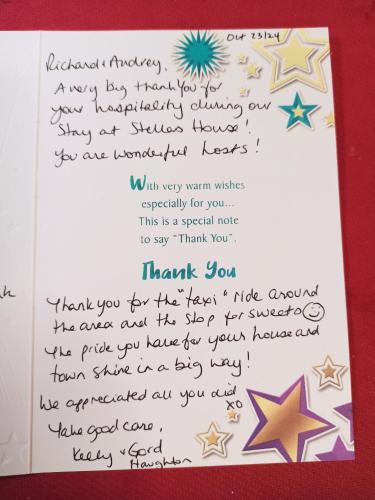 Oct 23/24
Richard & Audrey,
A very big thank you for
your hospitality during our
Stay at Stellas House!
You are wonderful hosts!
With very warm wishes
especially for you...
This is a special note
to say "Thank You".
Thank You
Thank you for the "taxi" ride around
the area and the stop for sweets
The pride you have for your house and
town shine in a big way!
We appreciated all you did
xo
Take good care,
Kelly & Gord
Haughton